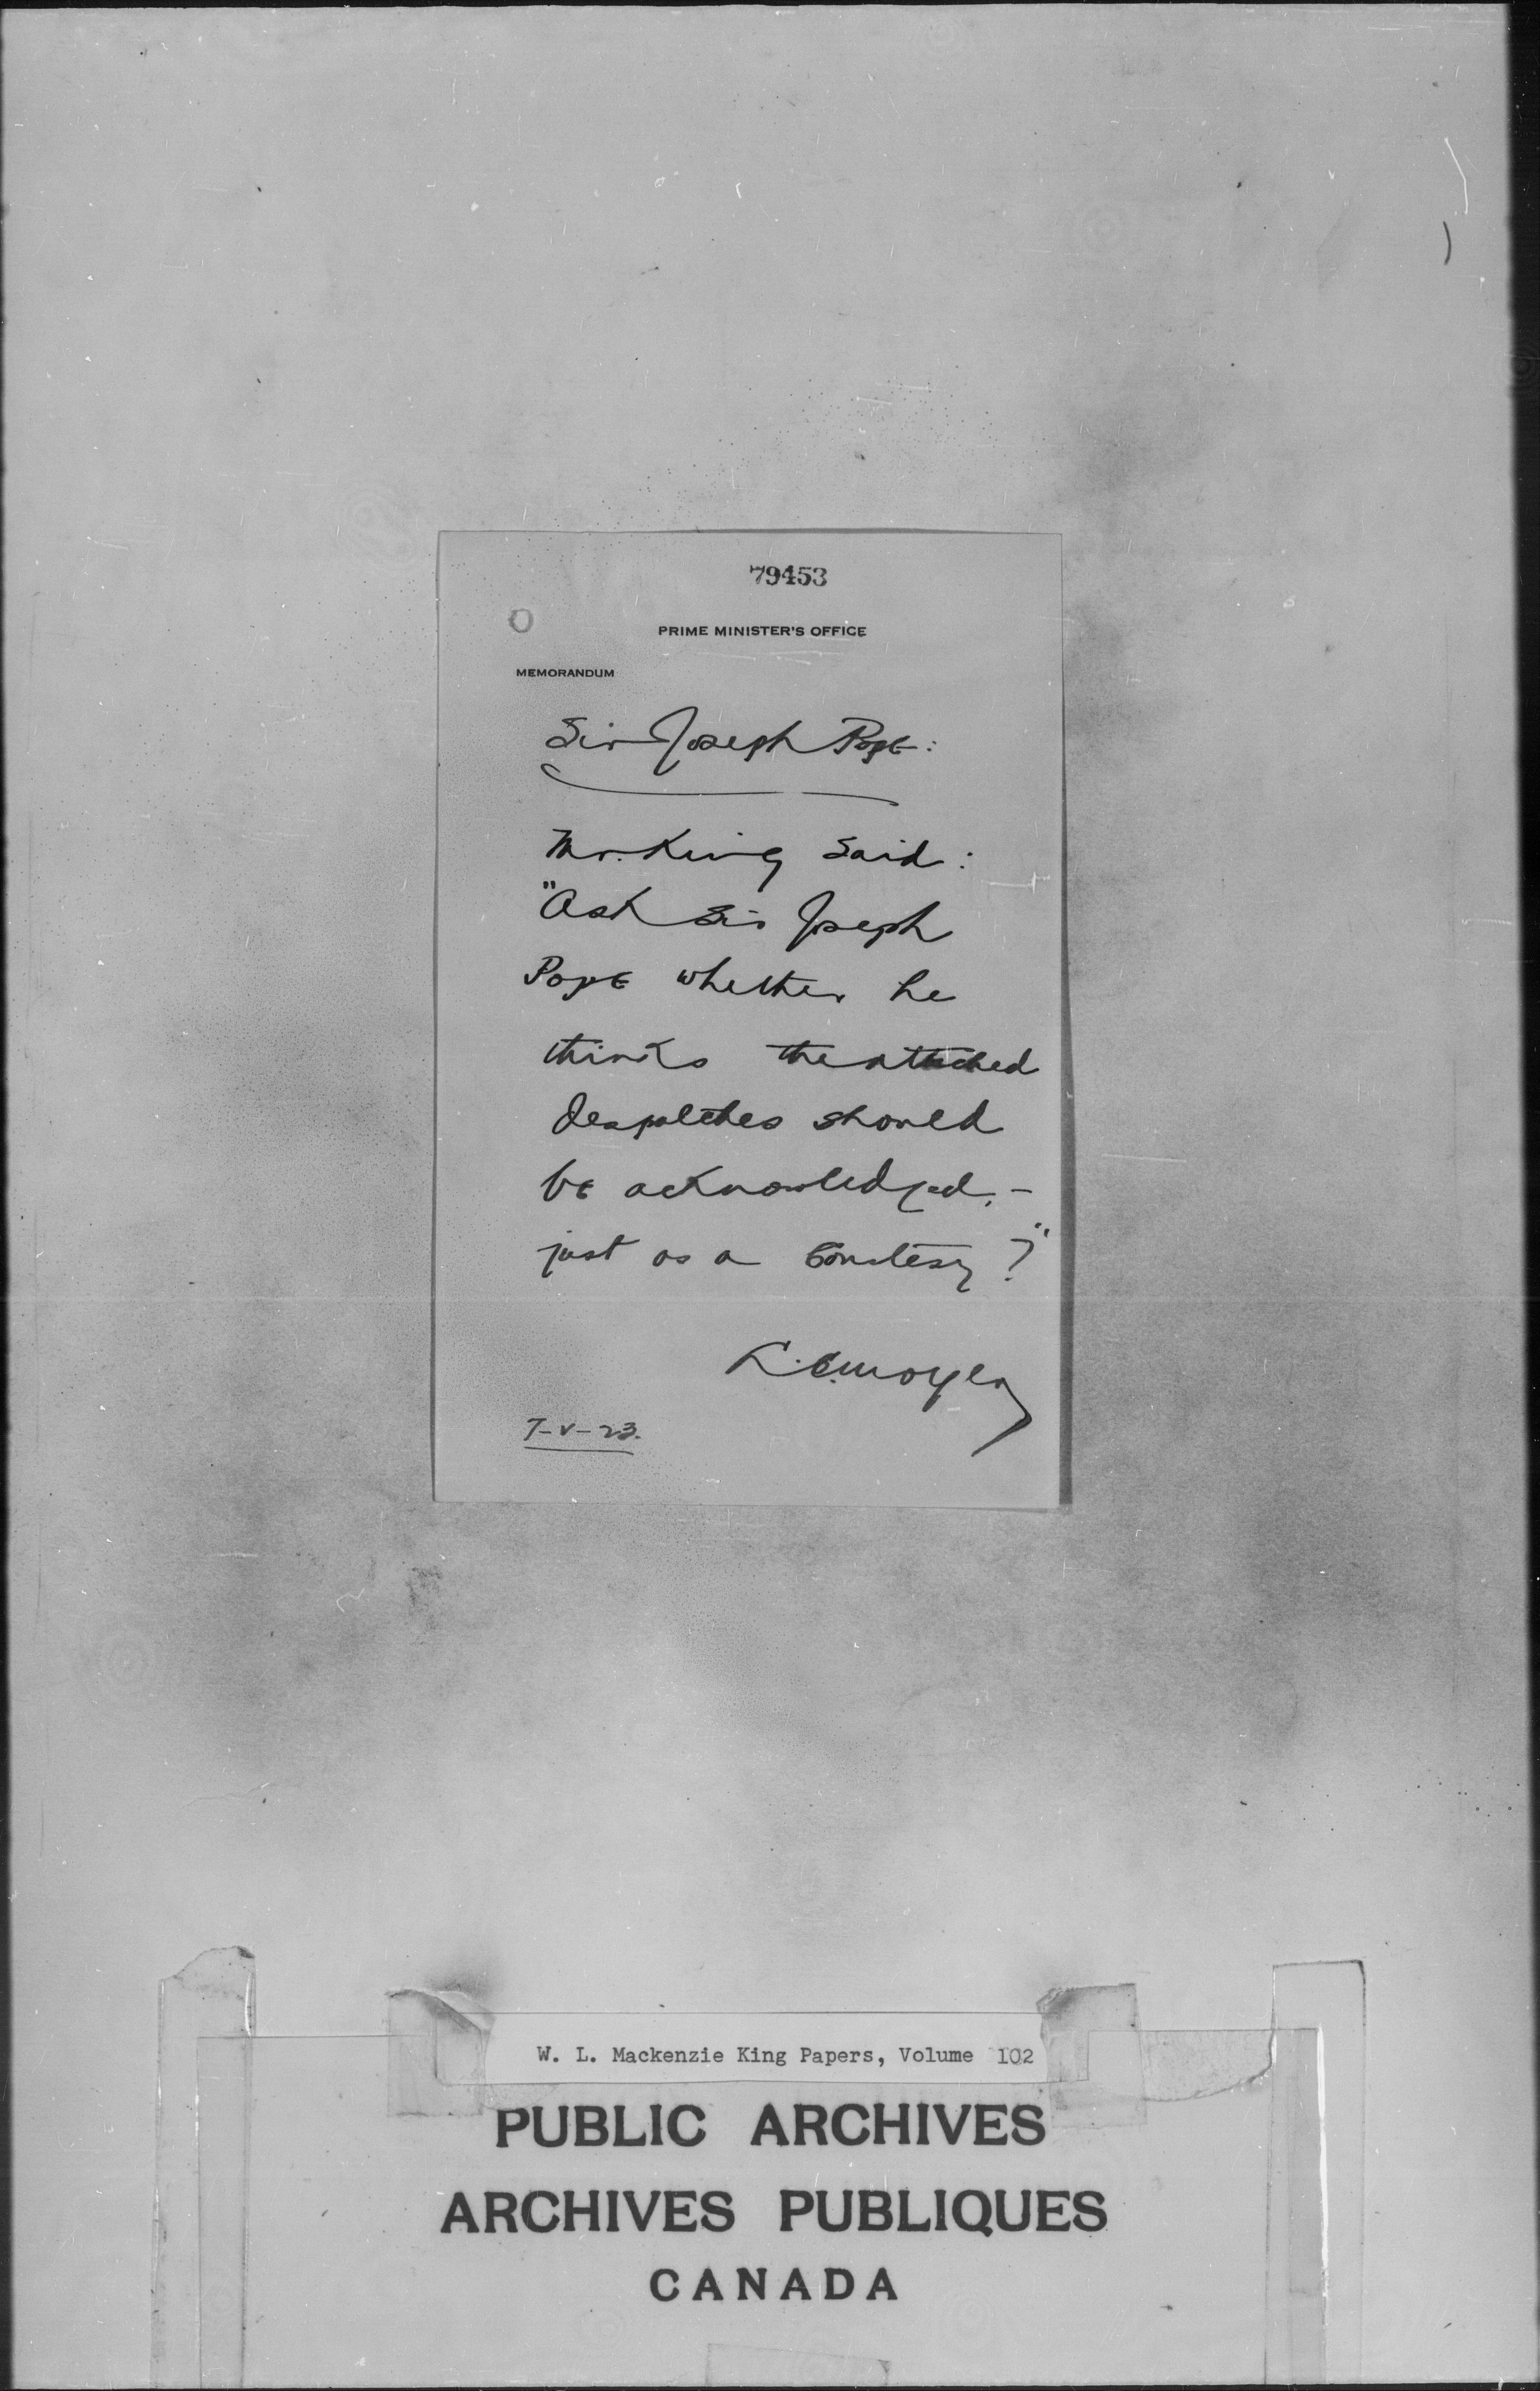 79453
PRIME MINISTER'S OFFICE
MEMORANDUM
Sir Joseph Pope:
Mr. King said:
"Ask Sir Joseph
Pope whether he
thinks the attached
despatches should
be acknowledged, -
just as a courtesy?"
L.C. Moyer
7-V-23.
W. L. Mackenzie King Papers, Volume 102
PUBLIC ARCHIVES
ARCHIVES PUBLIQUES
CANADA